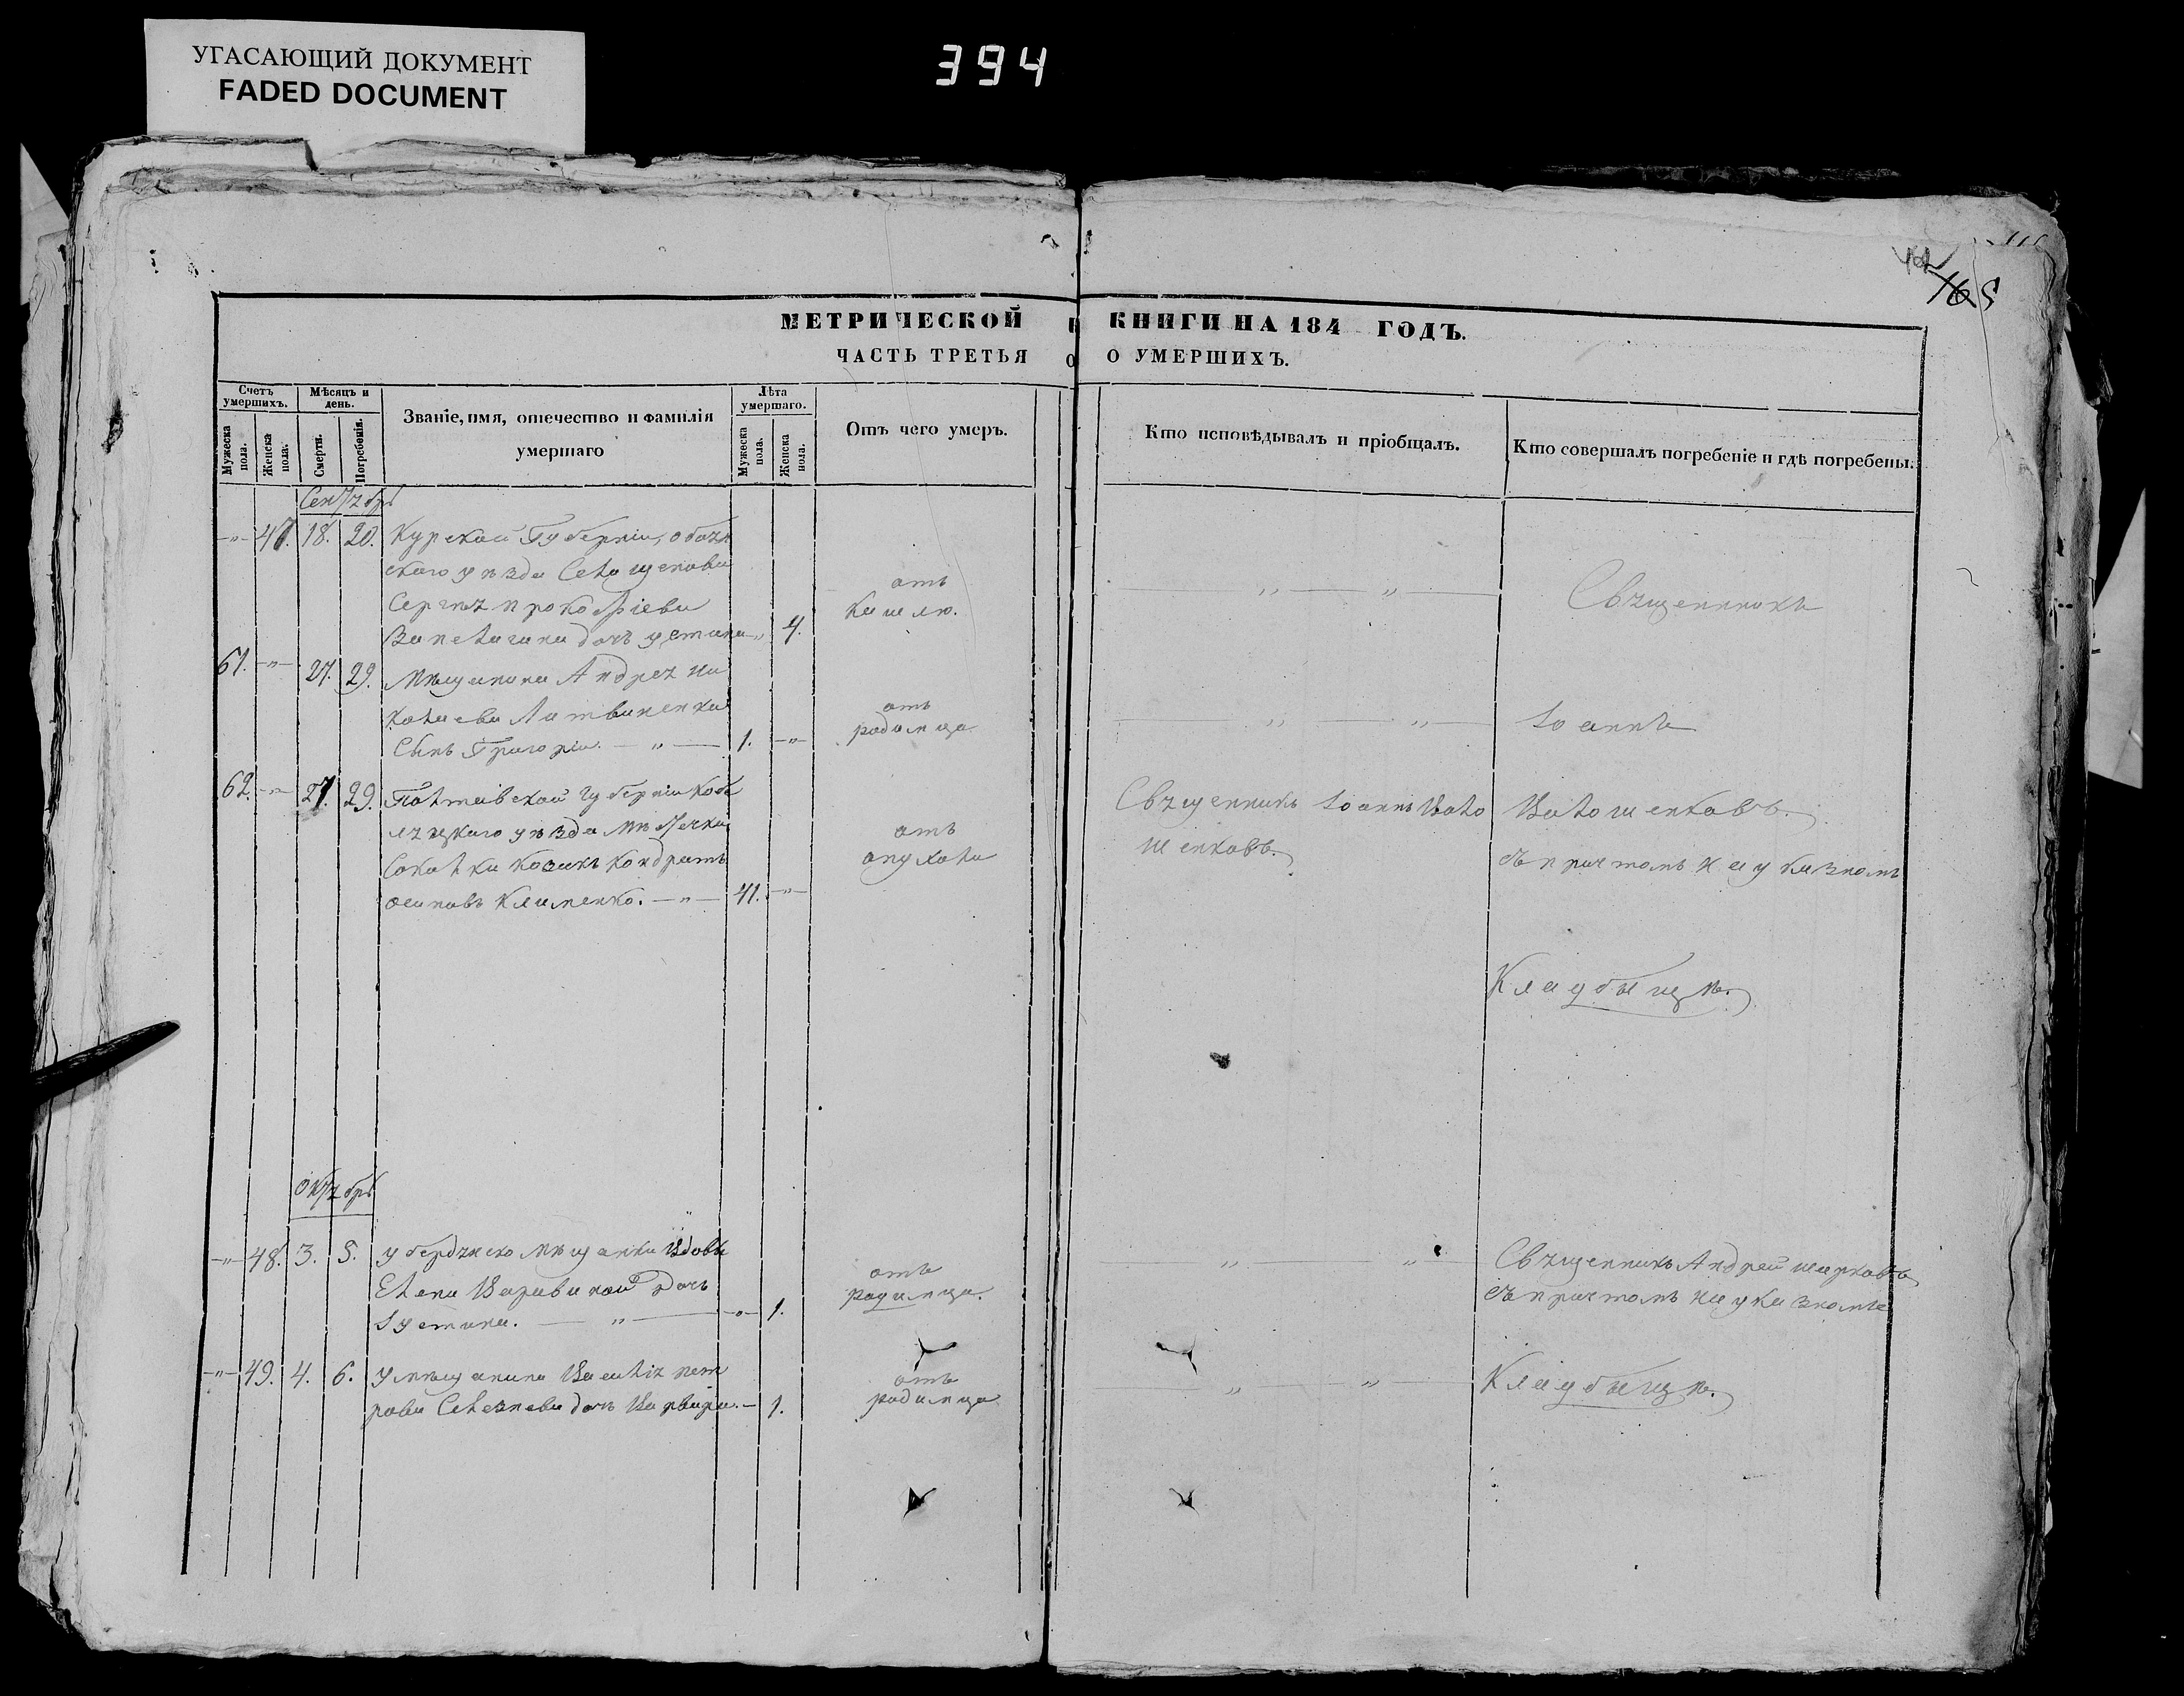 УГАСАЮЩИЙ ДОКУМЕНТ
FADED DOCUMENT
394
165
МЕТРИЧЕСКОЙ КНИГИ НА 184 ГОДЪ.
ЧАСТЬ ТРЕТЬЯ О УМЕРШИХЪ.
Счетъ умершихъ.
Мужеска пола.
Женска пола.
Мѣсяцъ и день.
Смерти.
Погребенія.
Званіе, имя, отечество и фамилія
умершаго
Лѣта умершаго.
Мужеска пола.
Женска пола.
Отъ чего умеръ.
Кто исповѣдывалъ и пріобщалъ.
Кто совершалъ погребеніе и гдѣ погребены.
Сентябрь
-"- 47. 18. 20. Курской Губерніи, обоян
скаго уѣзда Села
Сергѣя прокофіева
дочь устина -"- 4.
отъ
кашлю.
— " — " —
Священникъ
61. -"- 27. 29. Мѣщанина Андрея ни
колаева Литвиненка
Сынъ Григорій. — " — 1. -"-
отъ
родимца
" " —
Іоаннъ
62. -"- 27. 29. Полтавской губерніи кобе
ляцкаго уѣзда мѣстечка
Соколки козакъ кондратъ
осиповъ Клименко. — " — 41. -"-
отъ
опухоли
Священникъ Іоаннъ Воло
шенковъ.
Волошенковъ.
съ причтомъ на указномъ
Кладбищѣ.
октябрь
-"- 48. 3. 5. у бердянско мѣщанки вдовы
Елены дочь
Іустина. — " — -"- 1.
отъ
родимца.
— " — " —
Священникъ Андрей шарковъ
съ причтомъ на указномъ
-"- 49. 4. 6. у мѣщанина Василія пет
рова Селезнева дочь Варвара. - 1.
отъ
родимца
— " — " —
Кладбищѣ.